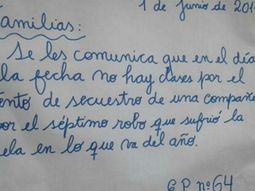 1 de Junio de 201
amilias:
Se les comunica que en el día
la fecha no hay clases por el
ento de secuestro de una compañe
or el séptimo robo que sufrió la
ela en lo que va del año.
E P nº 64